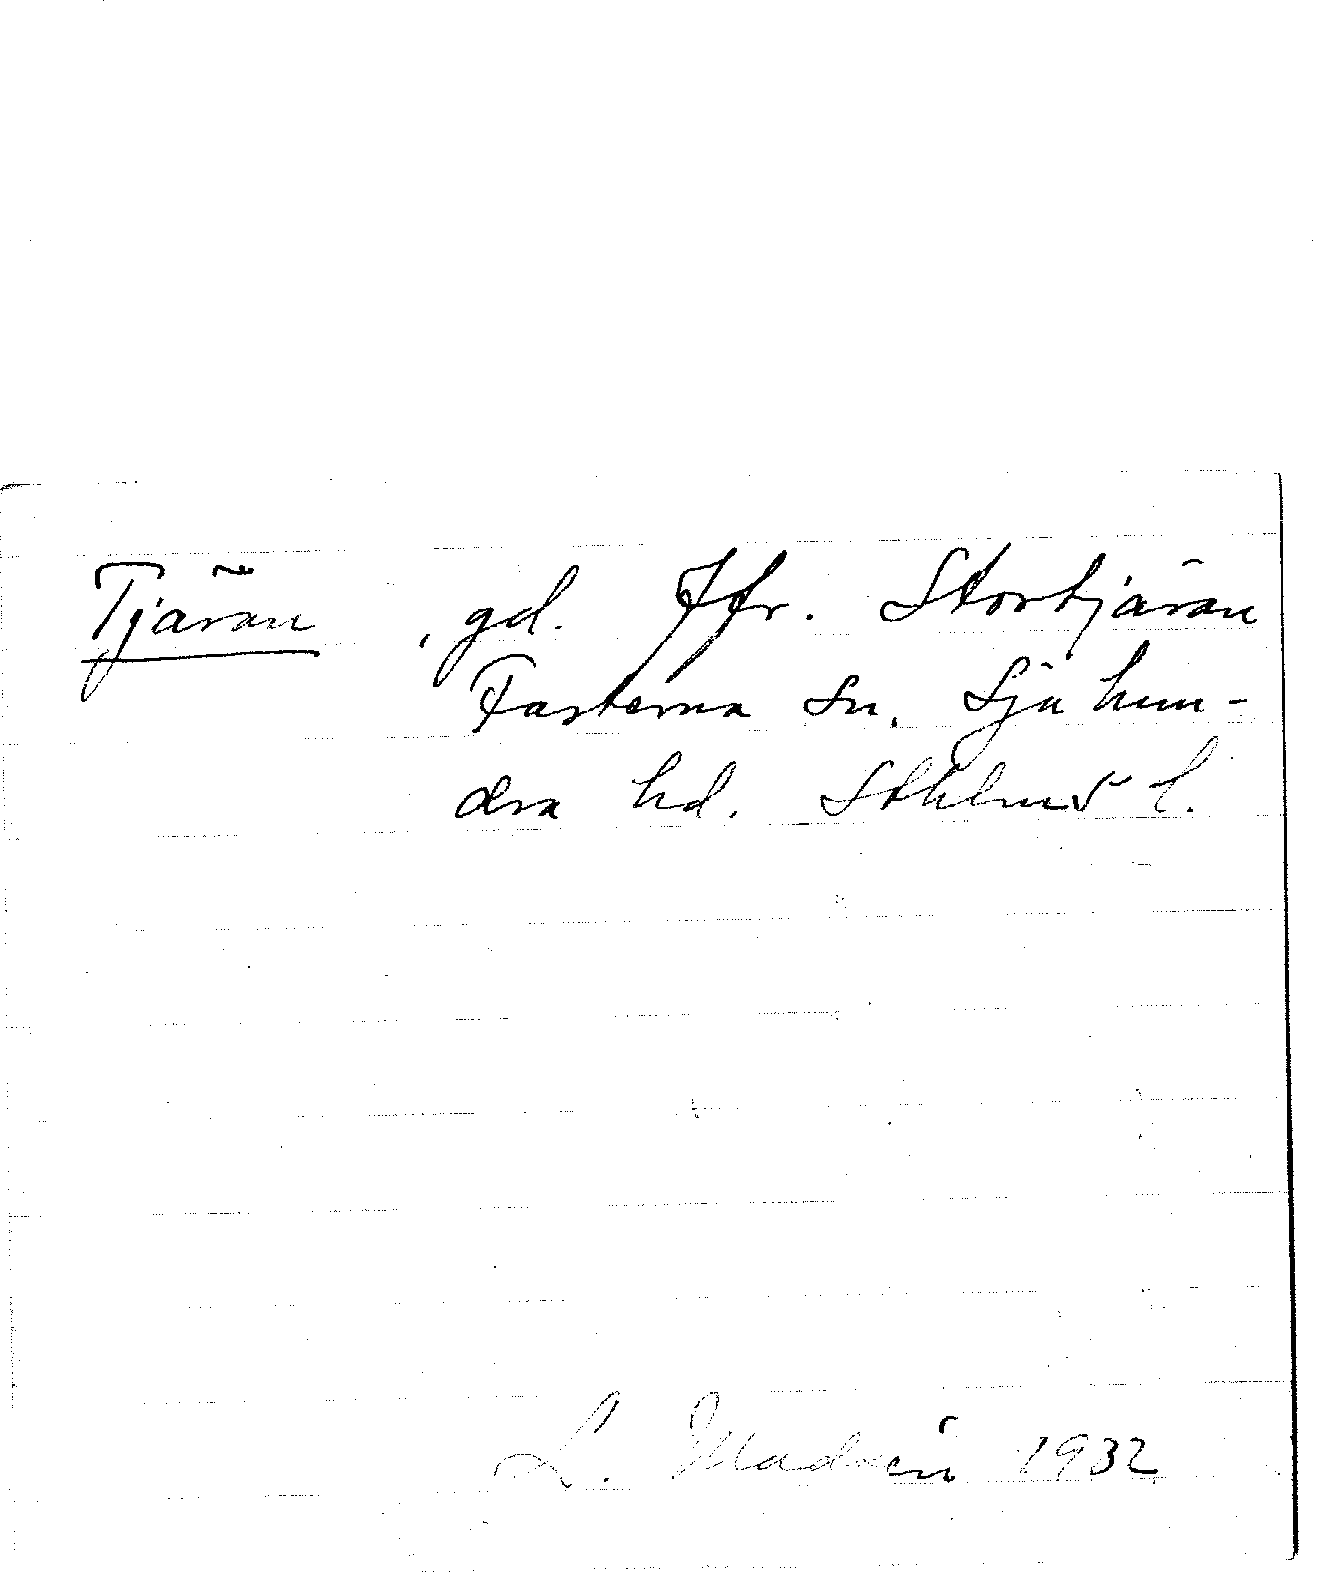 Tjäran, gd. Jfr. Stortjäran
Fasterna sn. Sjuhun-
dra hd. Sthlms l.
L. Modéen 1932